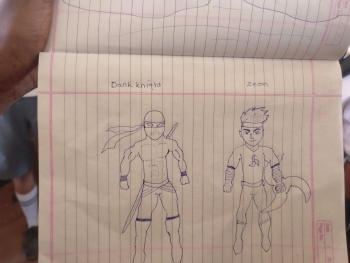 Dark knight
Zeon